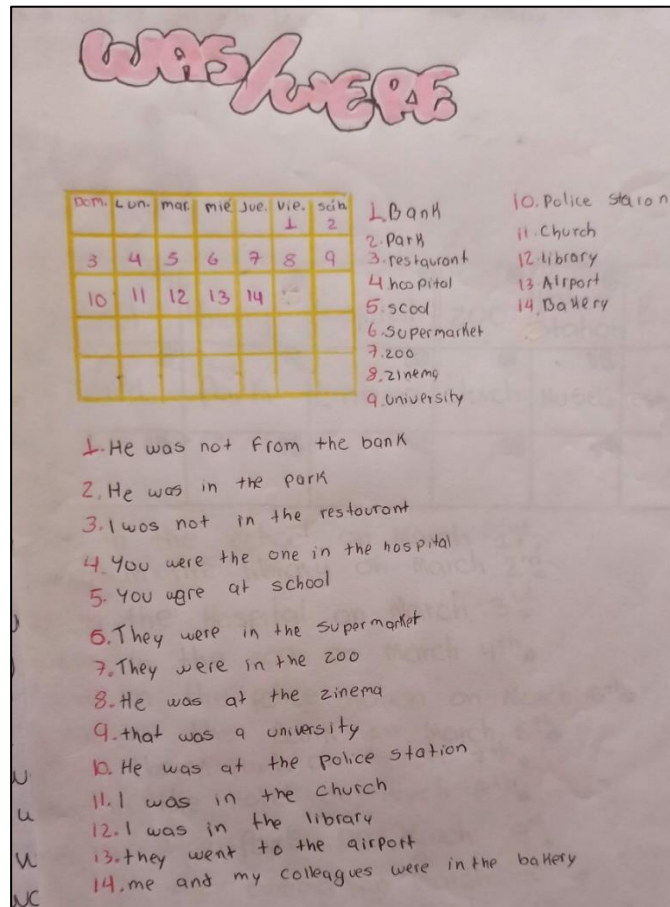 WAS/WERE
Dom. Lun. mar. mié Jue. Vie. Sáb
1 2
3 4 5 6 7 8 9
10 11 12 13 14
1. Bank
2. Park
3. restaurant
4 hoopital
5. scool
6. Supermarket
7. zoo
8. zinema
9. University
10. Police staion
11. Church
12. library
13. Airport
14. Bakery
1. He was not from the bank
2. He was in the park
3. I was not in the restourant
4. You were the one in the hospital
5. You agre at school
6. They were in the supermarket
7. They were in the zoo
8. He was at the zinema
9. that was a university
10. He was at the police station
11. I was in the church
12. I was in the library
13. they went to the airport
14. me and my colleagues were in the bakery